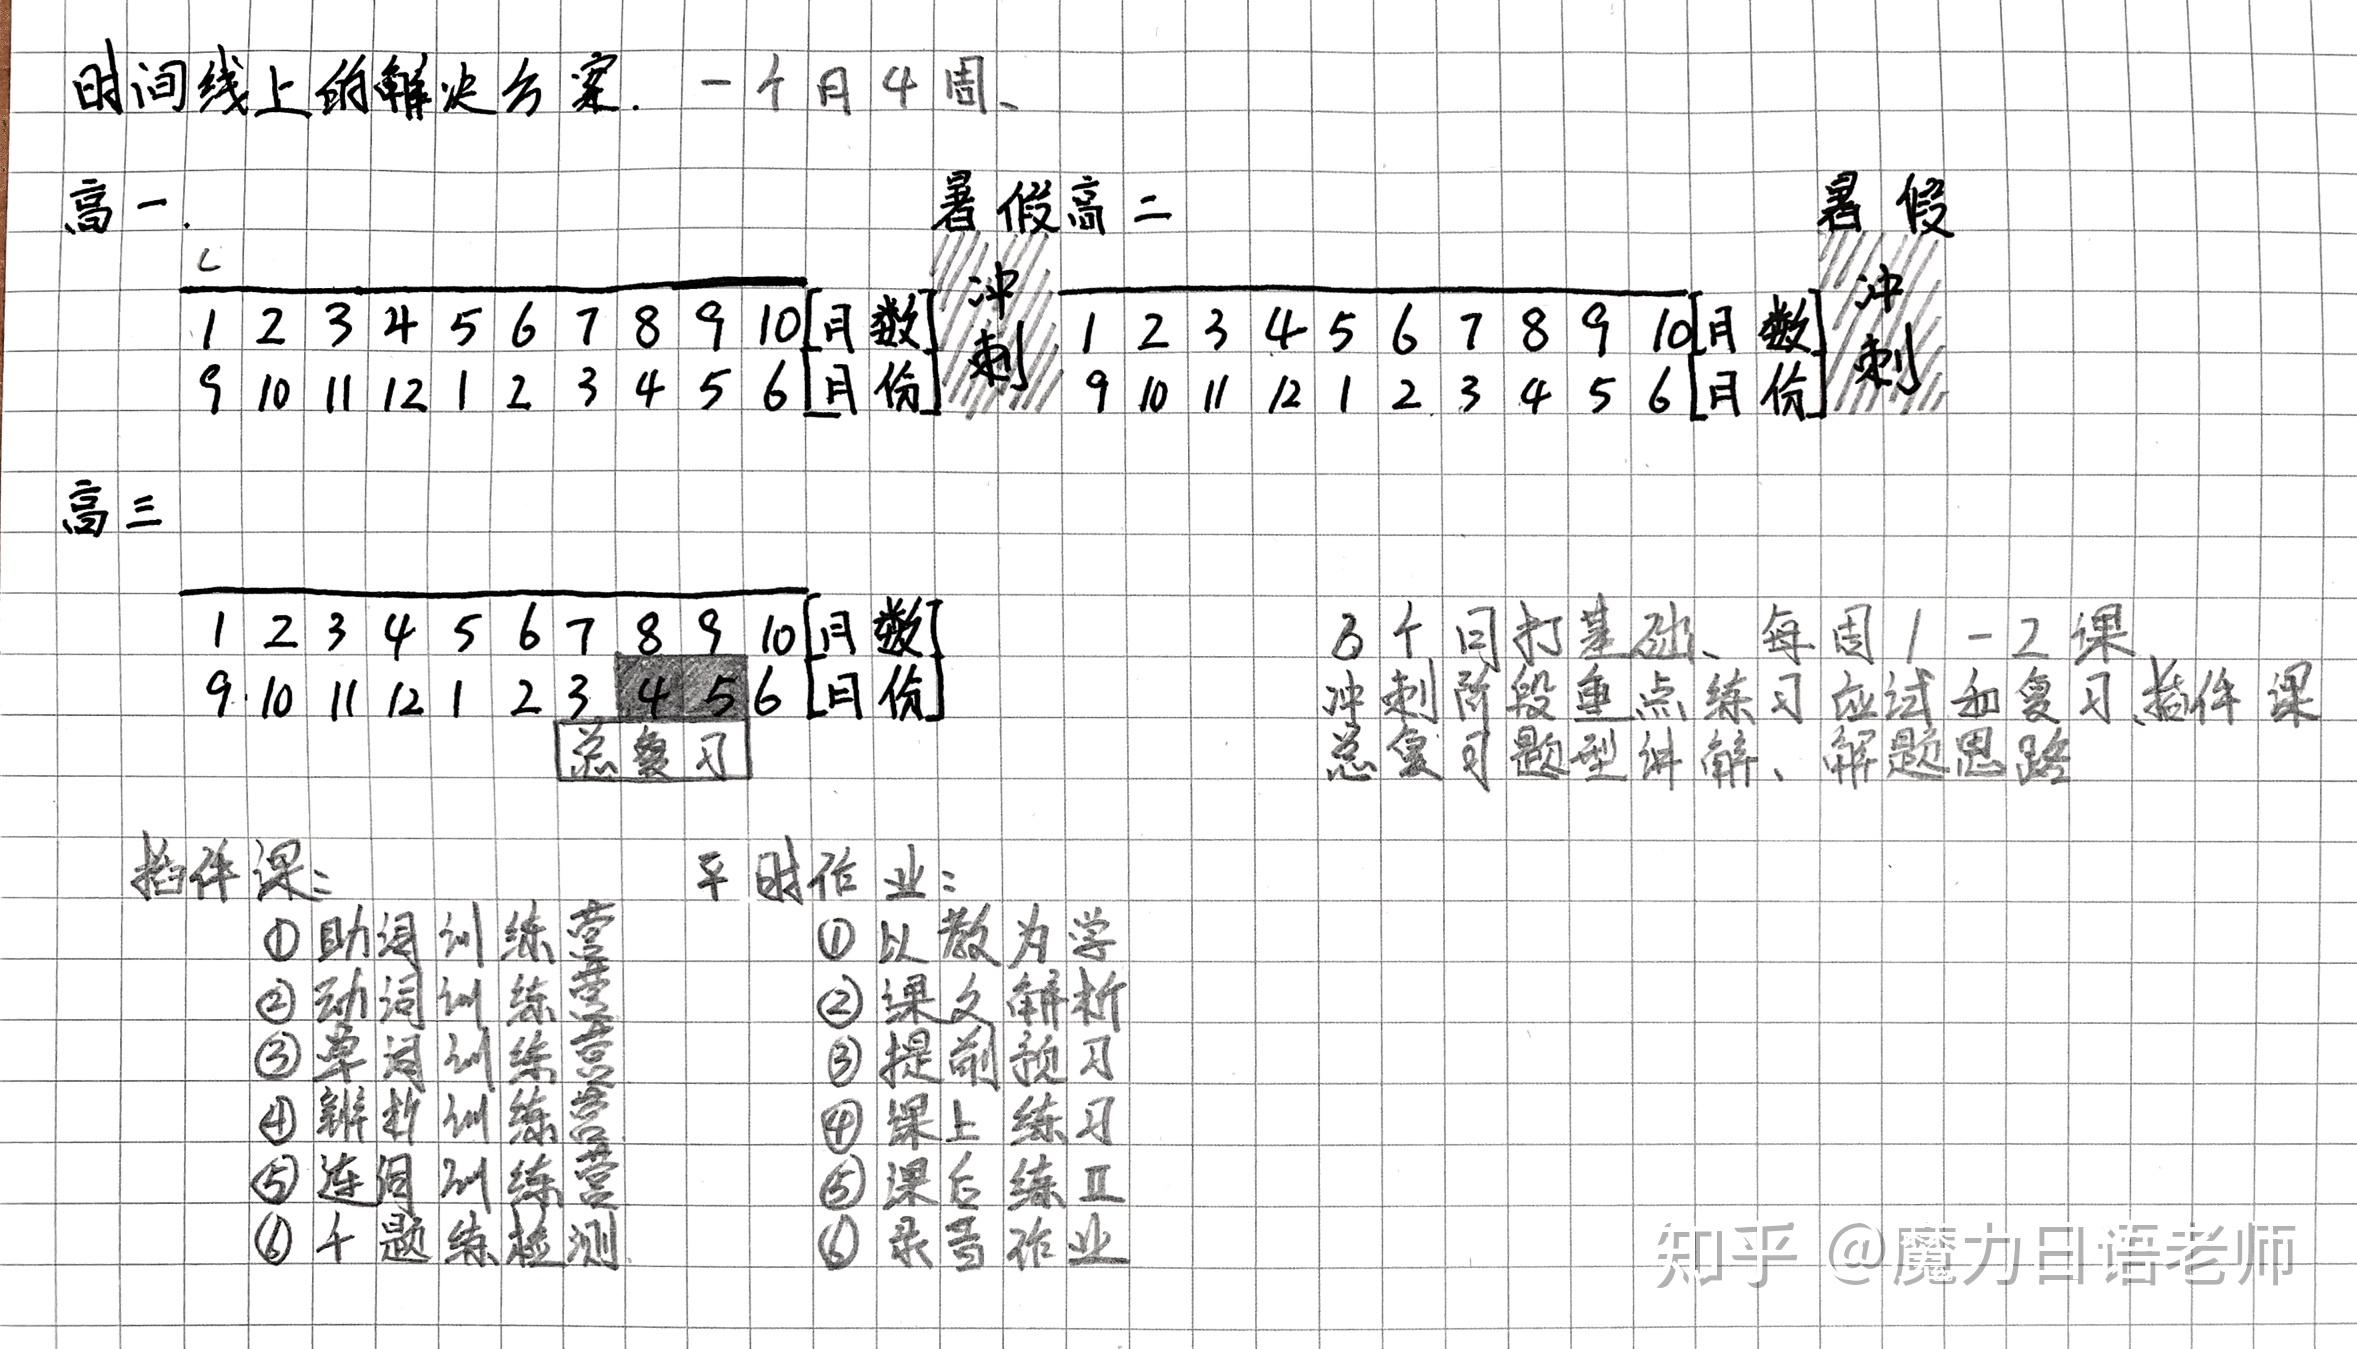 时间线上的解决方案. 一个月4周、
高一. 暑假 高二 暑假
冲刺 冲刺
1 2 3 4 5 6 7 8 9 10 [月数] 1 2 3 4 5 6 7 8 9 10 [月数]
9 10 11 12 1 2 3 4 5 6 [月份] 9 10 11 12 1 2 3 4 5 6 [月份]
高三
1 2 3 4 5 6 7 8 9 10 [月数]
9 10 11 12 1 2 3 4 5 6 [月份]
总复习
6个月打基础、每周1-2课
冲刺阶段重点练习应试和复习、插件课
总复习题型讲解、解题思路
插件课:
①助词训练营
②动词训练营
③单词训练营
④辨析训练营
⑤连词训练营
⑥千题练检测
平时作业:
①以教为学
②课文解析
③提前预习
④课上练习
⑤课后练Ⅱ
⑥录音作业
知乎 @魔力日语老师